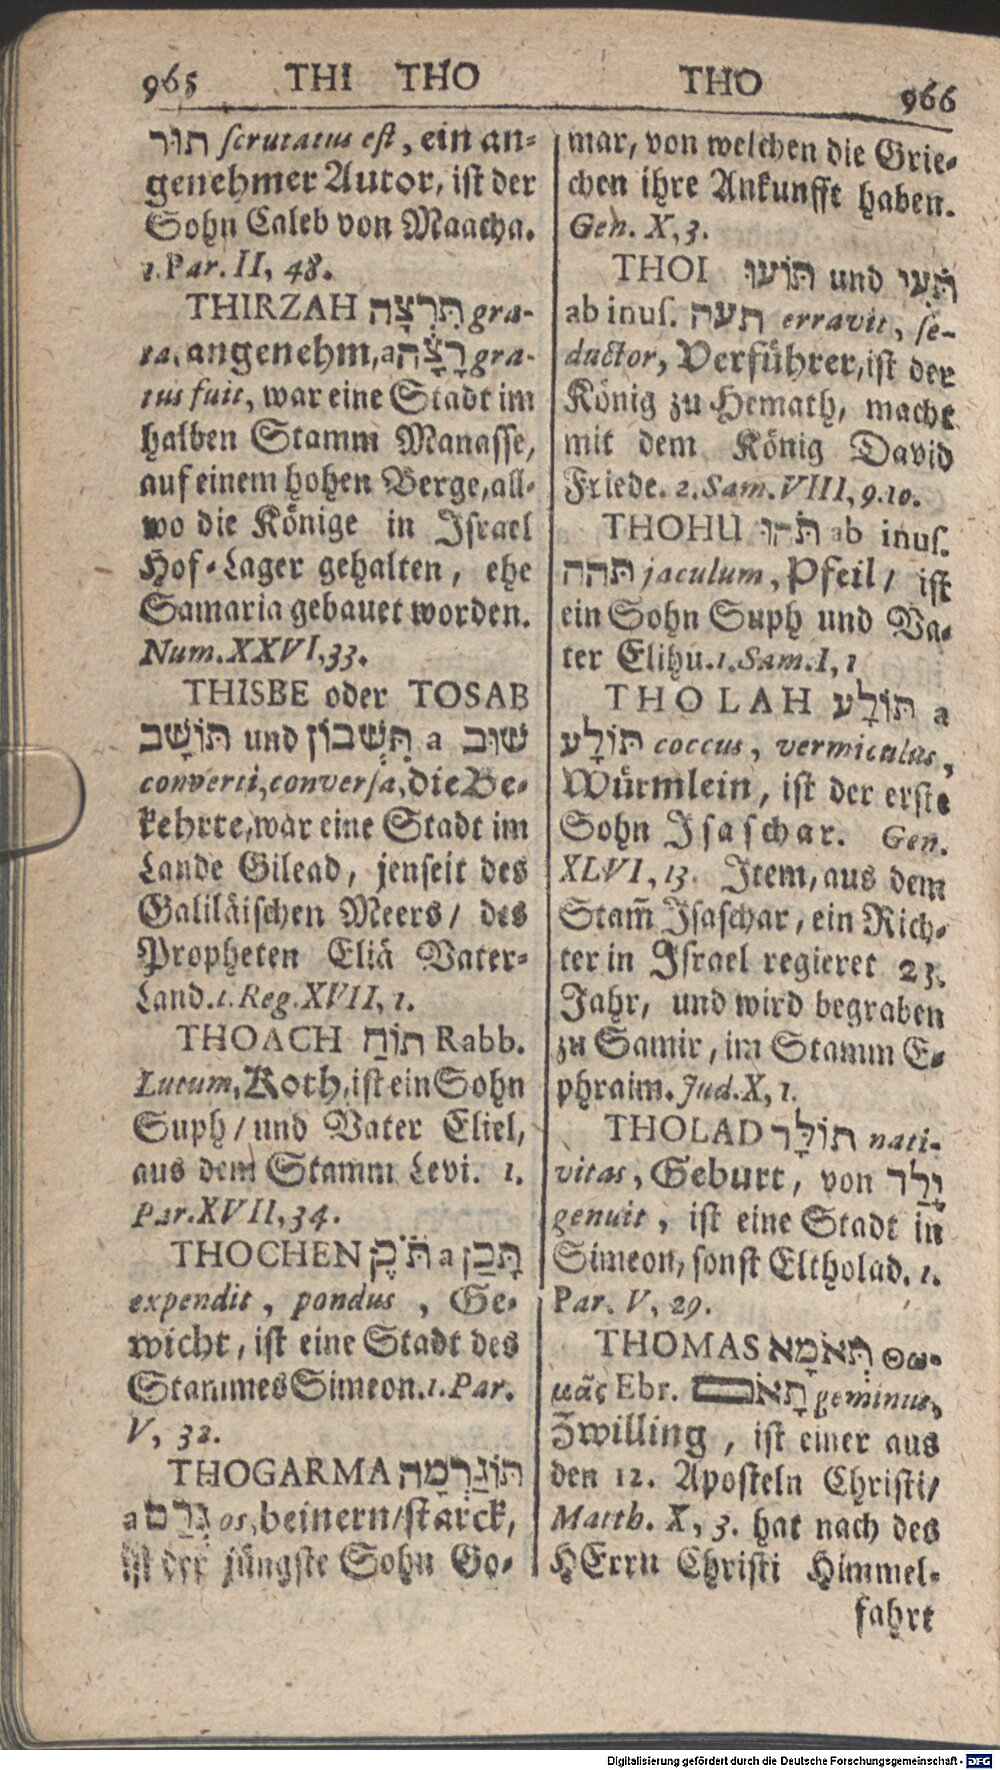 965 THI THO
תור scrutatus est, ein an-
genehmer Autor, ist der
Sohn Caleb von Maacha.
1. Par. II, 48.
THIRZAH תִּרְצָה gra-
ta, angenehm, a רָצָה gra-
tus fuit, war eine Stadt im
halben Stamm Manasse,
auf einem hohen Berge, all-
wo die Könige in Israel
Hof-Lager gehalten, ehe
Samaria gebauet worden.
Num. XXVI, 33.
THISBE oder TOSAB
תּוֹשָׁב und תִּשְׁבוֹן a שׁוּב
converti, conversa, die Be-
kehrte, war eine Stadt im
Lande Gilead, jenseit des
Galiläischen Meers/ des
Propheten Eliä Vater-
Land. 1. Reg. XVII, 1.
THOACH תוֹחַ Rabb.
Lutum, Koth, ist ein Sohn
Suph/ und Vater Eliel,
aus dem Stamm Levi. 1.
Par. XVII, 34.
THOCHEN תֹּכֶן a תָּכַן
expendit, pondus, Ge-
wicht, ist eine Stadt des
Stammes Simeon. 1. Par.
V, 32.
THOGARMA תּוֹגַרְמָה
a גֶּרֶם os, beinern/ starck,
ist der jüngste Sohn Go-
THO 966
mar, von welchen die Grie-
chen ihre Ankunfft haben.
Gen. X, 3.
THOI תּוֹעוּ und תֹּעִי
ab inus. תעה erravit, se-
ductor, Verführer, ist der
König zu Hemath, macht
mit dem König David
Friede. 2. Sam. VIII, 9. 10.
THOHU תֹּהוּ ab inus.
תהה jaculum, Pfeil/ ist
ein Sohn Suph und Va-
ter Elihu. 1. Sam. I, 1
THOLAH תּוֹלָע a
תּוֹלָע coccus, vermiculus,
Würmlein, ist der erste
Sohn Isaschar. Gen.
XLVI, 13. Item, aus dem
Stam̃ Isaschar, ein Rich-
ter in Israel regieret 23.
Jahr, und wird begraben
zu Samir, im Stamm E-
phraim. Jud. X, 1.
THOLAD תּוֹלָד nati-
vitas, Geburt, von יָלַד
genuit, ist eine Stadt in
Simeon, sonst Eltholad. 1.
Par. V, 29.
THOMAS תְּאֹמָא Θω-
μᾶς Ebr. תָּאוֹם geminus,
Zwilling, ist einer aus
den 12. Aposteln Christi/
Matth. X, 3. hat nach des
HErrn Christi Himmel-
fahrt
Digitalisierung gefördert durch die Deutsche Forschungsgemeinschaft - DFG